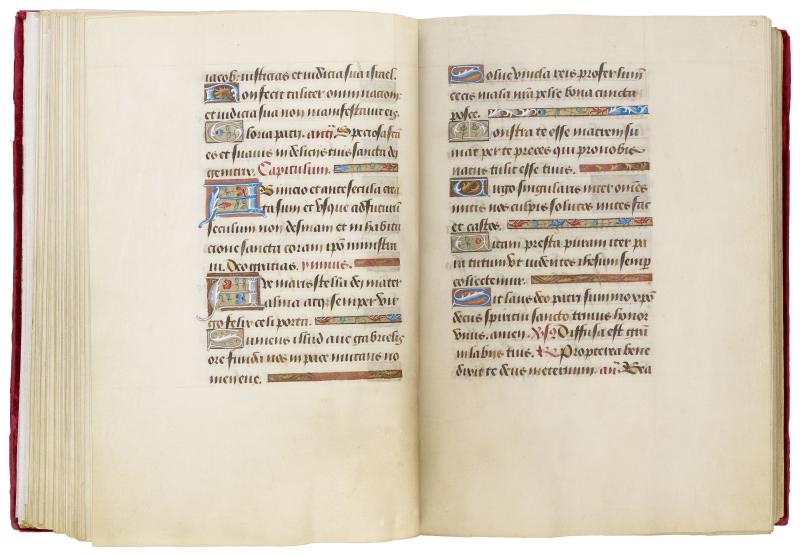 iacob: iusticias et iudicia sua israel.
Non fecit taliter omni nacioni:
et iudicia sua non manifestauit eis.
Gloria patri. an͂. Speciosa facta
es et suauis in delicijs tuis sancta dei
genitrix. Capitulum.
Ab inicio et ante secula crea
ta sum et vsque ad futurū
seculum non desinam et in habita
cione sancta coram ipō ministra
ui. Deo gracias. ymnus.
Aue maris stella dei mater
alma atq; semper vir
go felix celi porta.
Sumens illud aue gabrielis
ore funda nos in pace mutans no
men eue.
Solue vincla reis profer lumē
cecis mala nrā pelle bona cuncta
posce.
Monstra te esse matrem su
mat per te preces qui pro nobis
natus tulit esse tuus.
Virgo singularis inter om̄es
mitis nos culpis solutos mites fac
et castos.
Vitam presta puram iter pa
ra tutum vt videntes ihesum semp̄
collectemur.
Sit laus deo patri summo xpō
decus spiritui sancto trinus honor
vnus. amen. V̄s Diffusa est grā
in labijs tuis. R̄ Propterea bene
dixit te deus in eternum. an͂. Bea